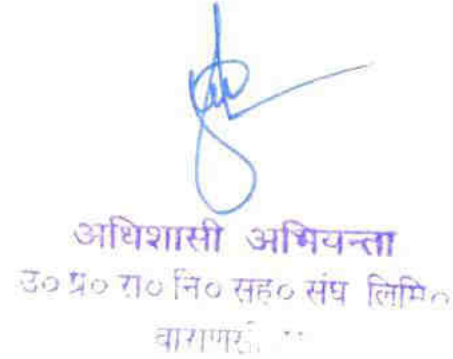 अधिशासी अभियन्ता
उ० प्र० रा० नि० सह० संघ लिमि०